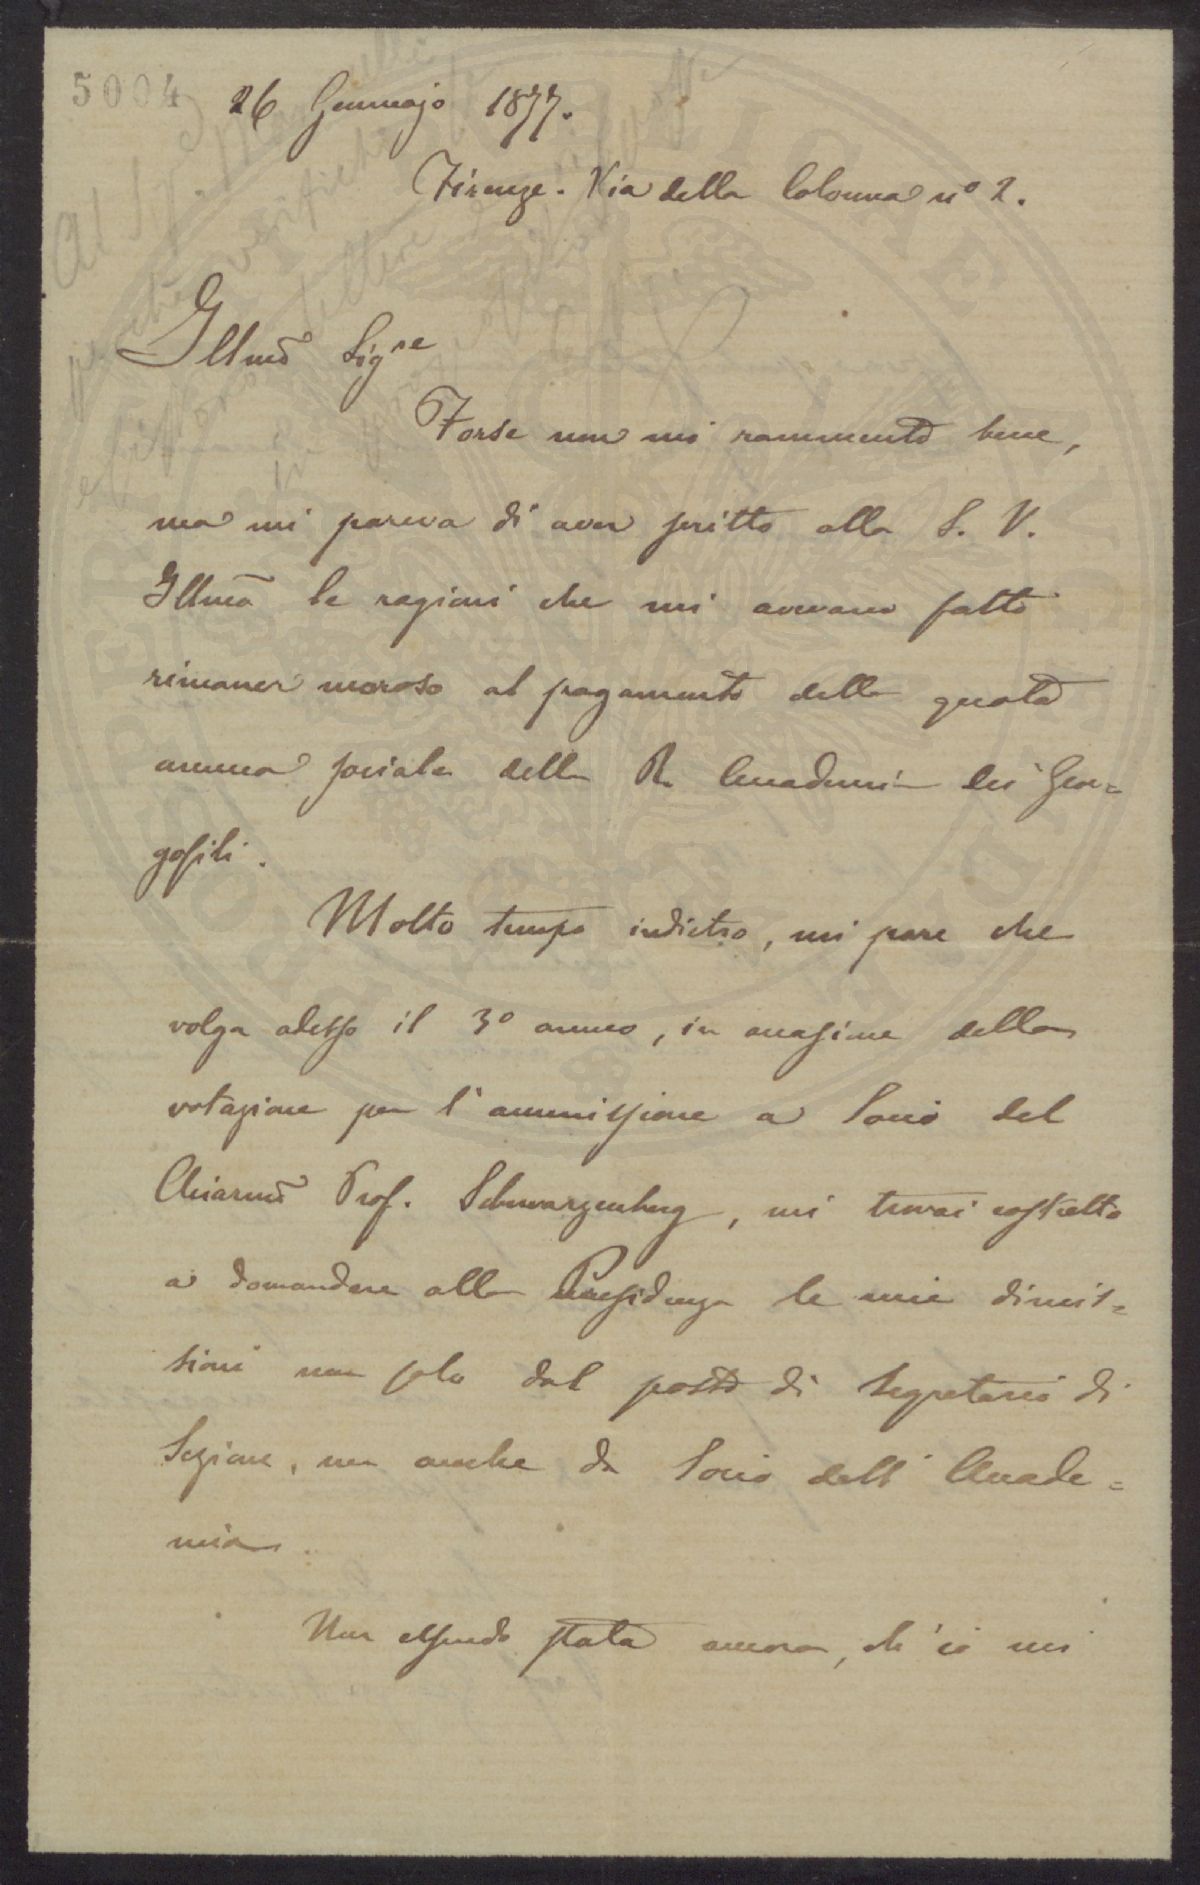 5004
26 Gennajo 1877.
Firenze. Via della Colonna nº 2.
Illmo Sigre
Forse non mi rammento bene,
ma mi pareva di aver scritto alla S. V.
Illma le ragioni che mi avevano fatto
rimaner moroso al pagamento della quota
annua sociale della R. Accademia dei Geor=
gofili.
Molto tempo indietro, mi pare che
volga adesso il 3º anno, in occasione della
votazione per l'ammissione a Socio del
Chiarmo Prof. Schwarzenberg, mi trovai costretto
a domandare alla Presidenza le mie dimis=
sioni non solo dal posto di Segretario di
Sezione, ma anche da Socio dell'Accade=
mia.
Non essendo stata ancora, ch'io mi